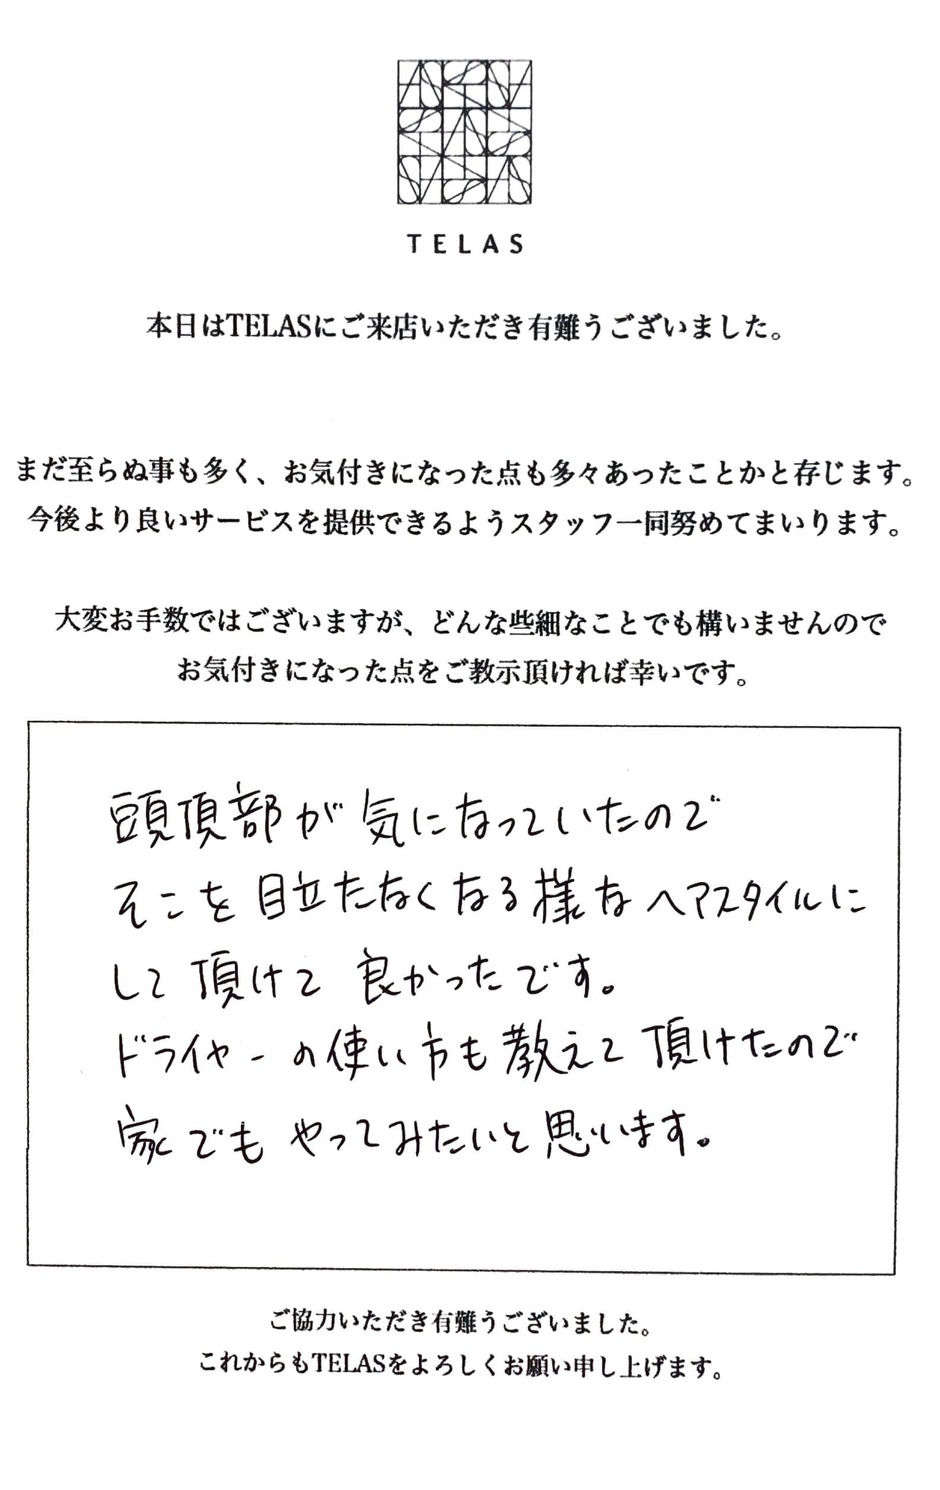 TELAS
本日はTELASにご来店いただき有難うございました。
まだ至らぬ事も多く、お気付きになった点も多々あったことかと存じます。
今後より良いサービスを提供できるようスタッフ一同努めてまいります。
大変お手数ではございますが、どんな些細なことでも構いませんので
お気付きになった点をご教示頂ければ幸いです。
頭頂部が気になっていたので
そこを目立たなくなる様なヘアスタイルに
して頂けて良かったです。
ドライヤーの使い方も教えて頂けたので
家でもやってみたいと思います。
ご協力いただき有難うございました。
これからもTELASをよろしくお願い申し上げます。